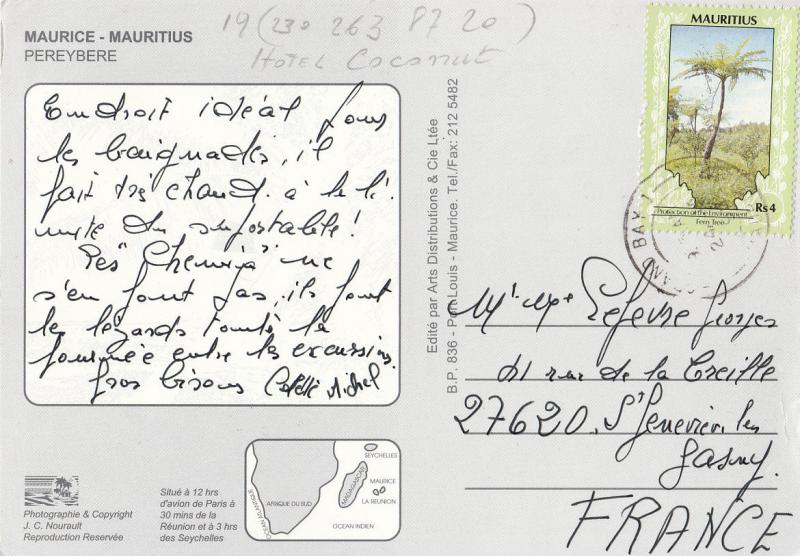 MAURICE - MAURITIUS
PEREYBERE
19 (230 263 87 20)
HOTEL Coconut
Endroit idéal pour
les baignades, il
fait très chaud. à la li-
mite du supportable!
Les "Chemija" ne
s'en font pas, ils font
les lézards toute la
journée entre les excursions.
Gros bisous Colette Michel
Situé à 12 hrs
d'avion de Paris à
30 mins de la
Réunion et à 3 hrs
des Seychelles
Photographie & Copyright
J. C. Nourault
Reproduction Reservée
SEYCHELLES
MADAGASCAR
MAURICE
LA REUNION
AFRIQUE DU SUD
OCEAN ATLANTIQUE
OCEAN INDIEN
Edité par Arts Distributions & Cie Ltée
B.P. 836 - Port Louis - Maurice. Tel./Fax: 212 5482
MAURITIUS
Protection of the Environment
Fern Tree
Rs 4
BAY
Mr Mme Lefevre Georges
41 rue de la Treille
27620. St Geneviève les
Gasny.
FRANCE